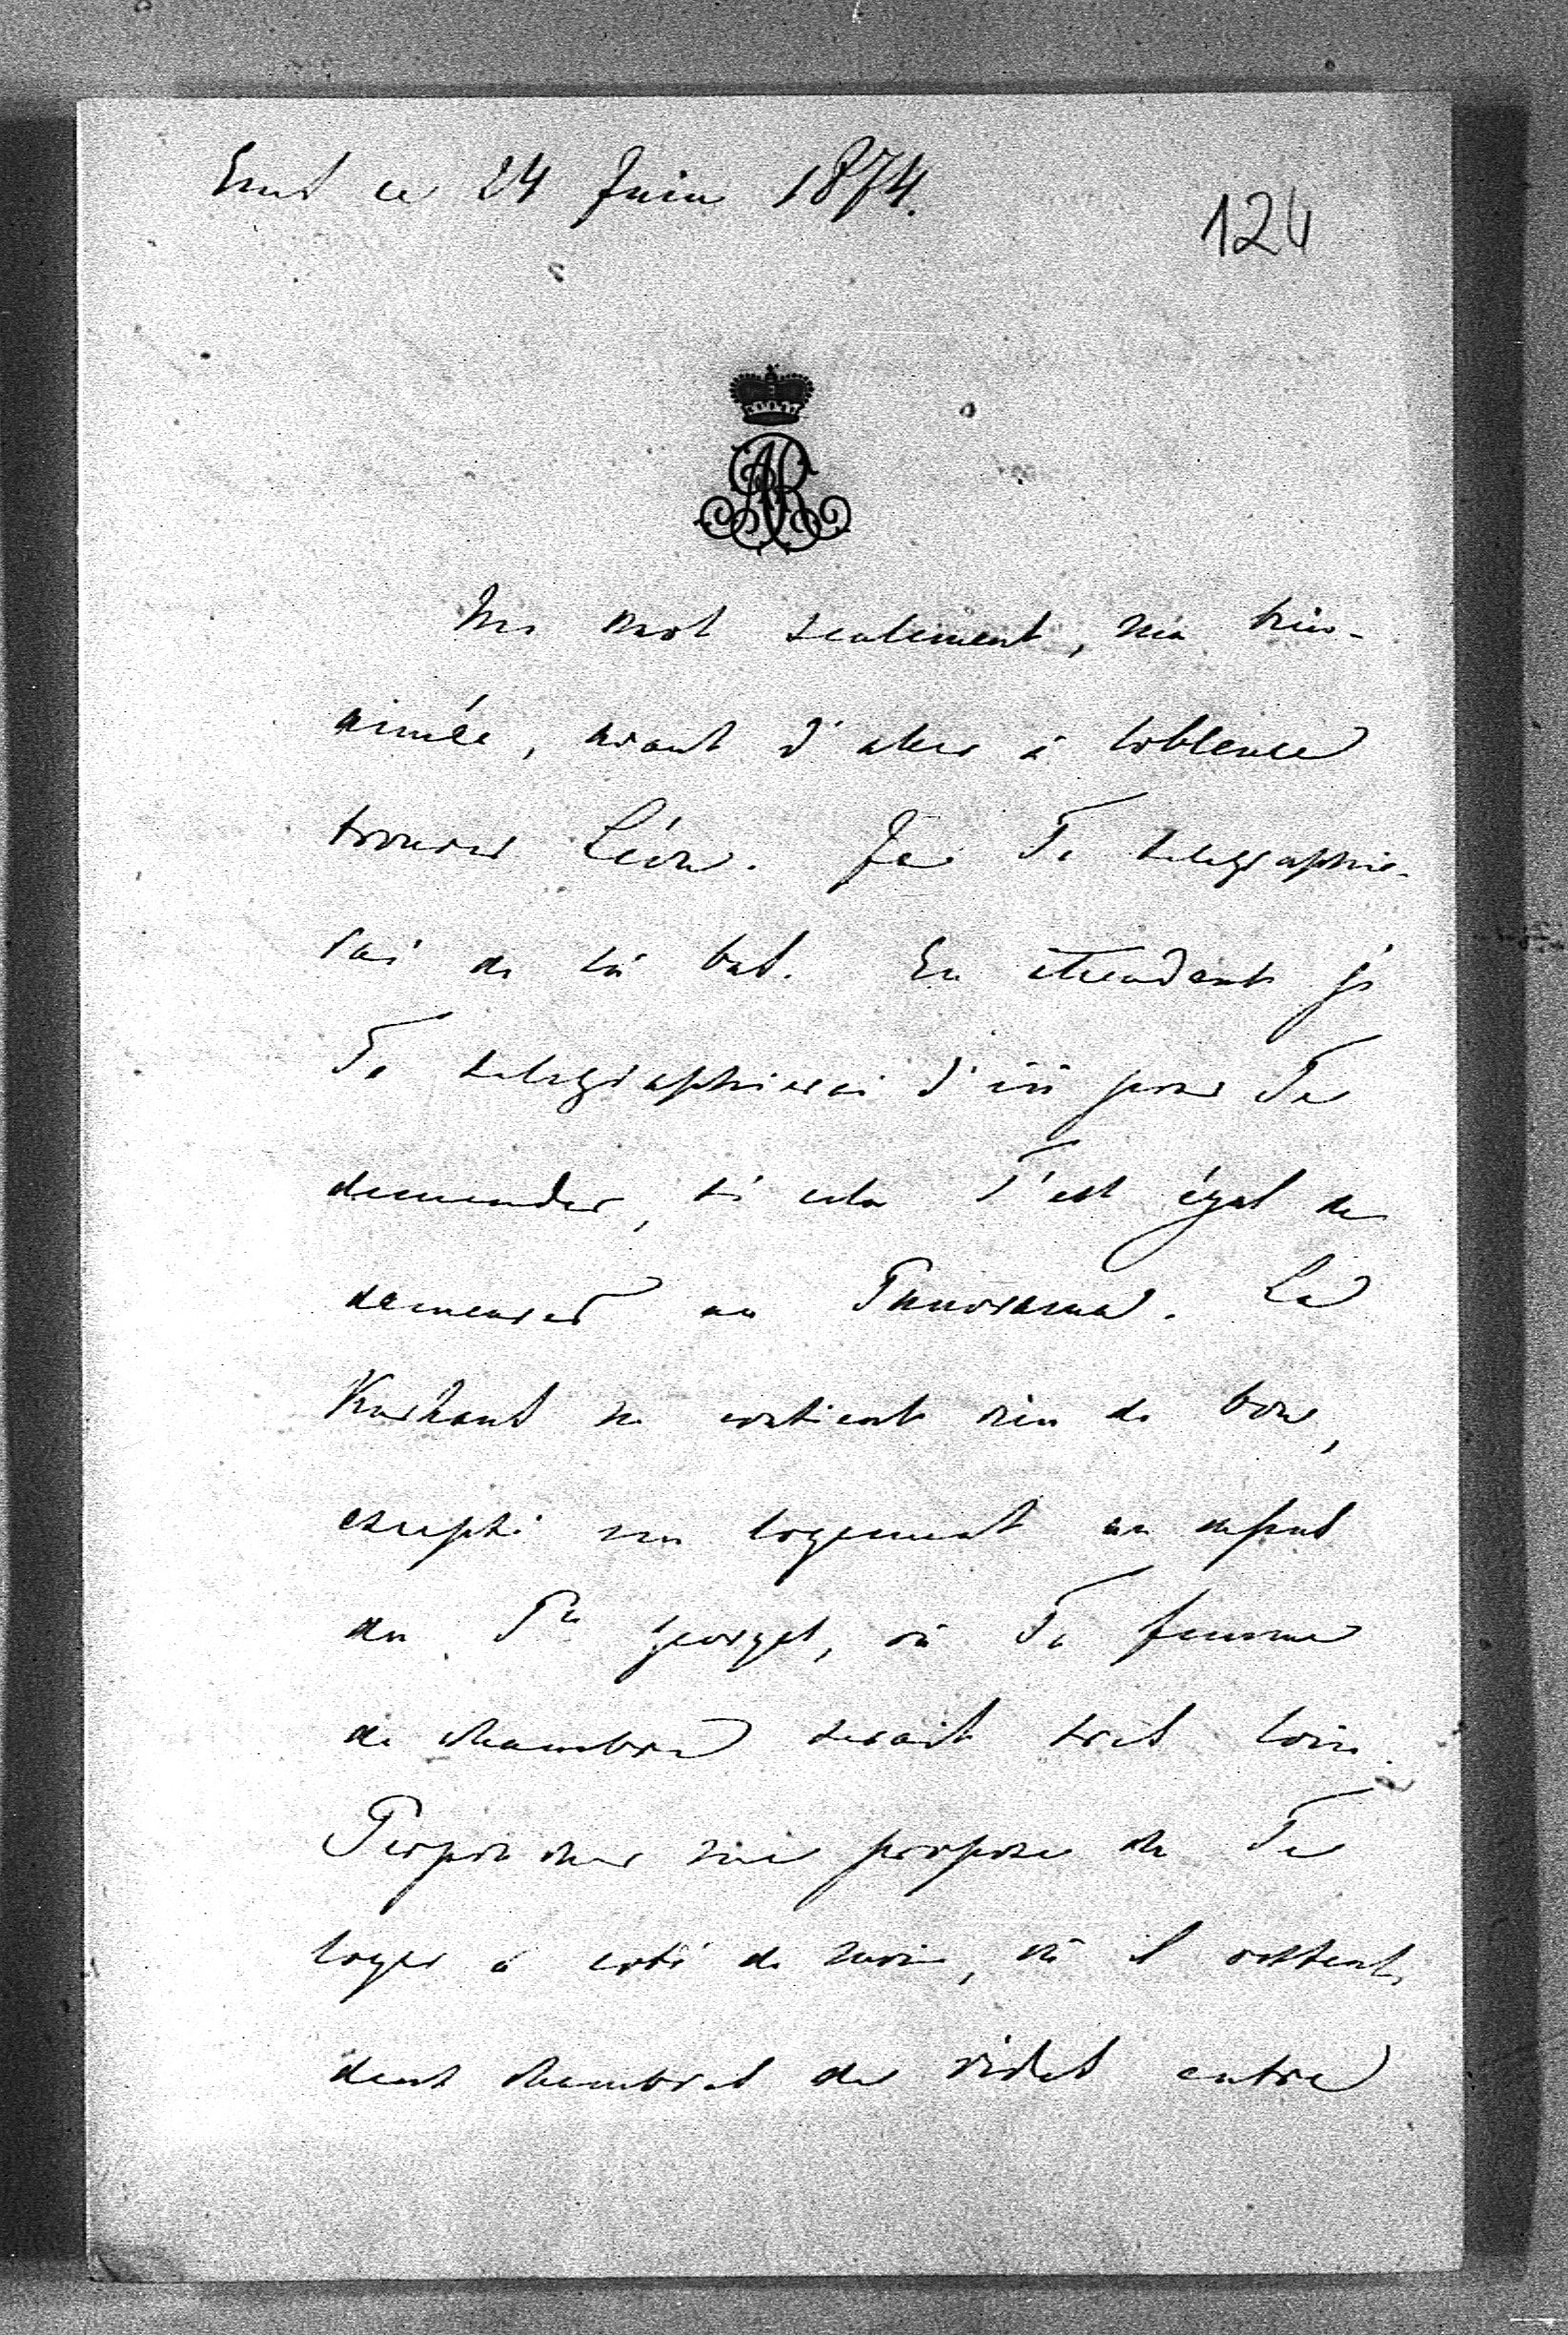 Ems ce 24 Juin 1874.
124
AR
Un mot seulement, ma bien-
aimée, avant d'aller à Coblence
trouver Léon. Je Te telegraphie-
rai de là bas. En attendant je
Te telegraphierai d'ici pour Te
demander, si cela T'est égal de
demeurer au Panorama. Le
Kurhaus ne contient rien de bon,
excepté un logement au dessus
du Pce Georges, où Ta femme
de chambre serait très loin.
Perponcher me propose de Te
loger à coté de moi, où il
deux chambres de vides entre